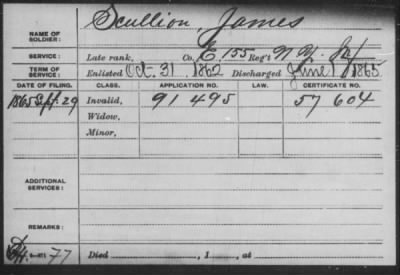 NAME OF SOLDIER: Scullion, James
SERVICE: Late rank, Co. E, 155 Reg't N.Y. Inf
TERM OF SERVICE: Enlisted Oct. 31, 1862 Discharged June 1, 1865
DATE OF FILING. CLASS. APPLICATION NO. LAW. CERTIFICATE NO.
1865 Sept. 29 Invalid, 91 495 57 604
Widow,
Minor,
ADDITIONAL SERVICES:
REMARKS:
77 Died , 1 , at